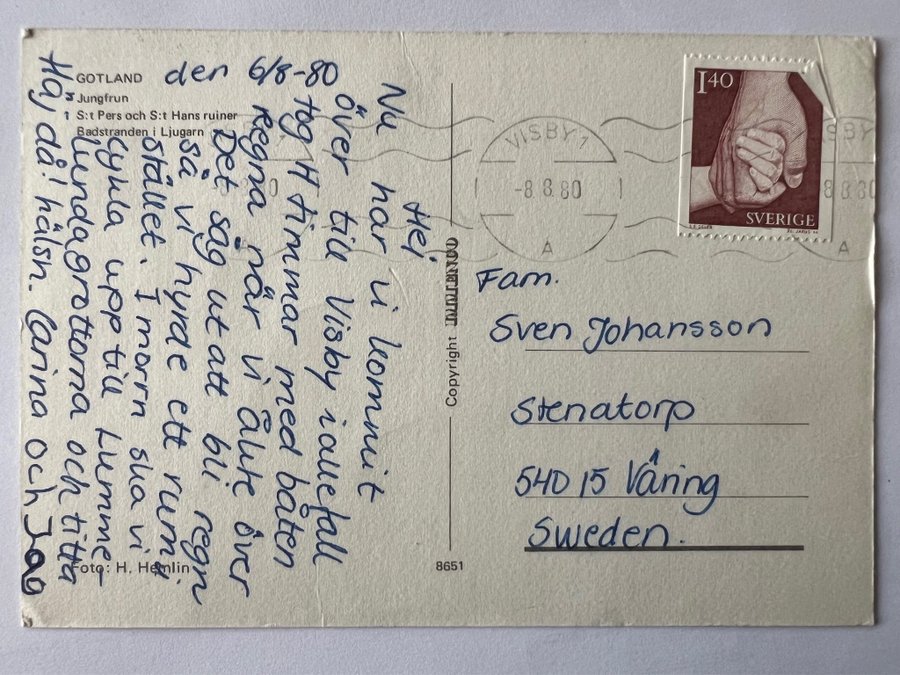 GOTLAND
Jungfrun
S:t Pers och S:t Hans ruiner
Badstranden i Ljugarn
den 6/8-80
Hej
Nu har vi kommit
över till Visby i allefall
tog 4 timmar med båten
regna när vi åkte över
Det såg ut att bli regn
så vi hyrde ett rum i
stället. I morrn ska vi
cykla upp till Lumme-
lundagrottorna och titta
Haj då! hälsn. Carina och Jag
Foto: H. Hemlin
Copyright
8651
VISBY 1
-8 8.80
A
1 40
SVERIGE
Fam.
Sven Johansson
Stenatorp
540 15 Våring
Sweden.